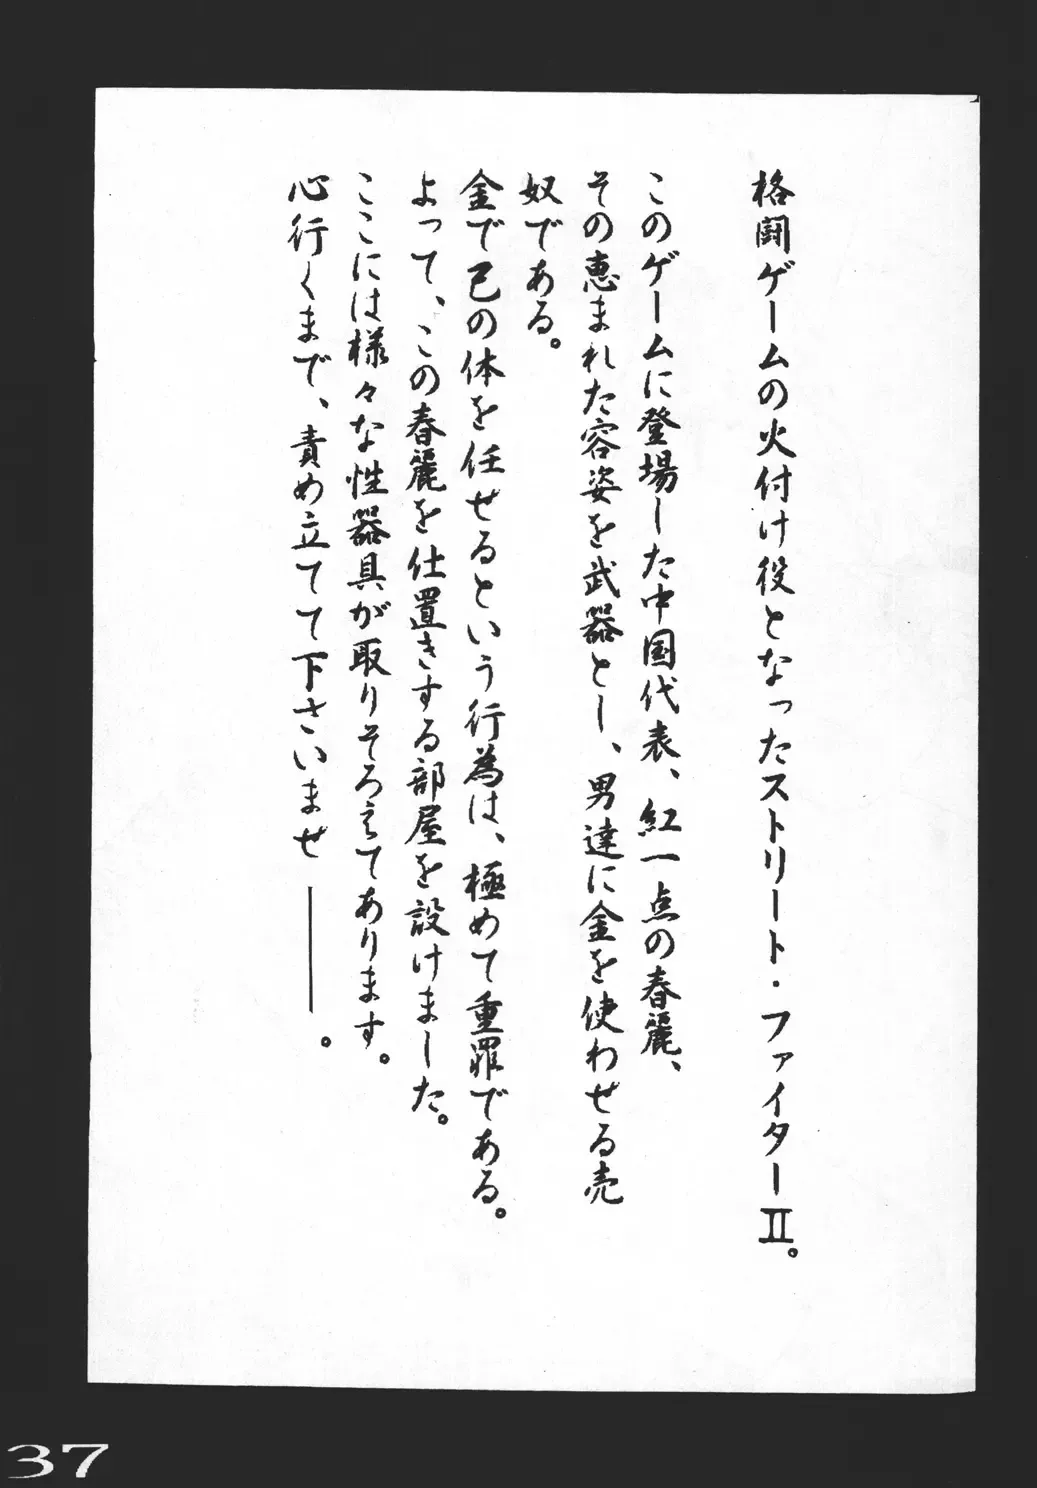 格闘ゲームの火付け役となったストリート・ファイターⅡ。
このゲームに登場した中国代表、紅一点の春麗、
その恵まれた容姿を武器とし、男達に金を使わせる売
奴である。
金で己の体を任せるという行為は、極めて重罪である。
よって、この春麗を仕置きする部屋を設けました。
ここには様々な性器具が取りそろえてあります。
心行くまで、責め立てて下さいませ――。
37